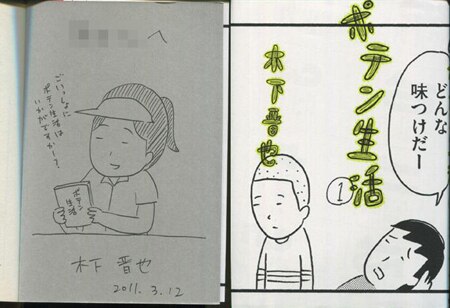 へ
ごいっしょに
ポテン生活は
いかがですか～？
ポテン
生活
木下 晋也
2011. 3. 12
ポテン生活
①
木下晋也
どんな
味つけだー